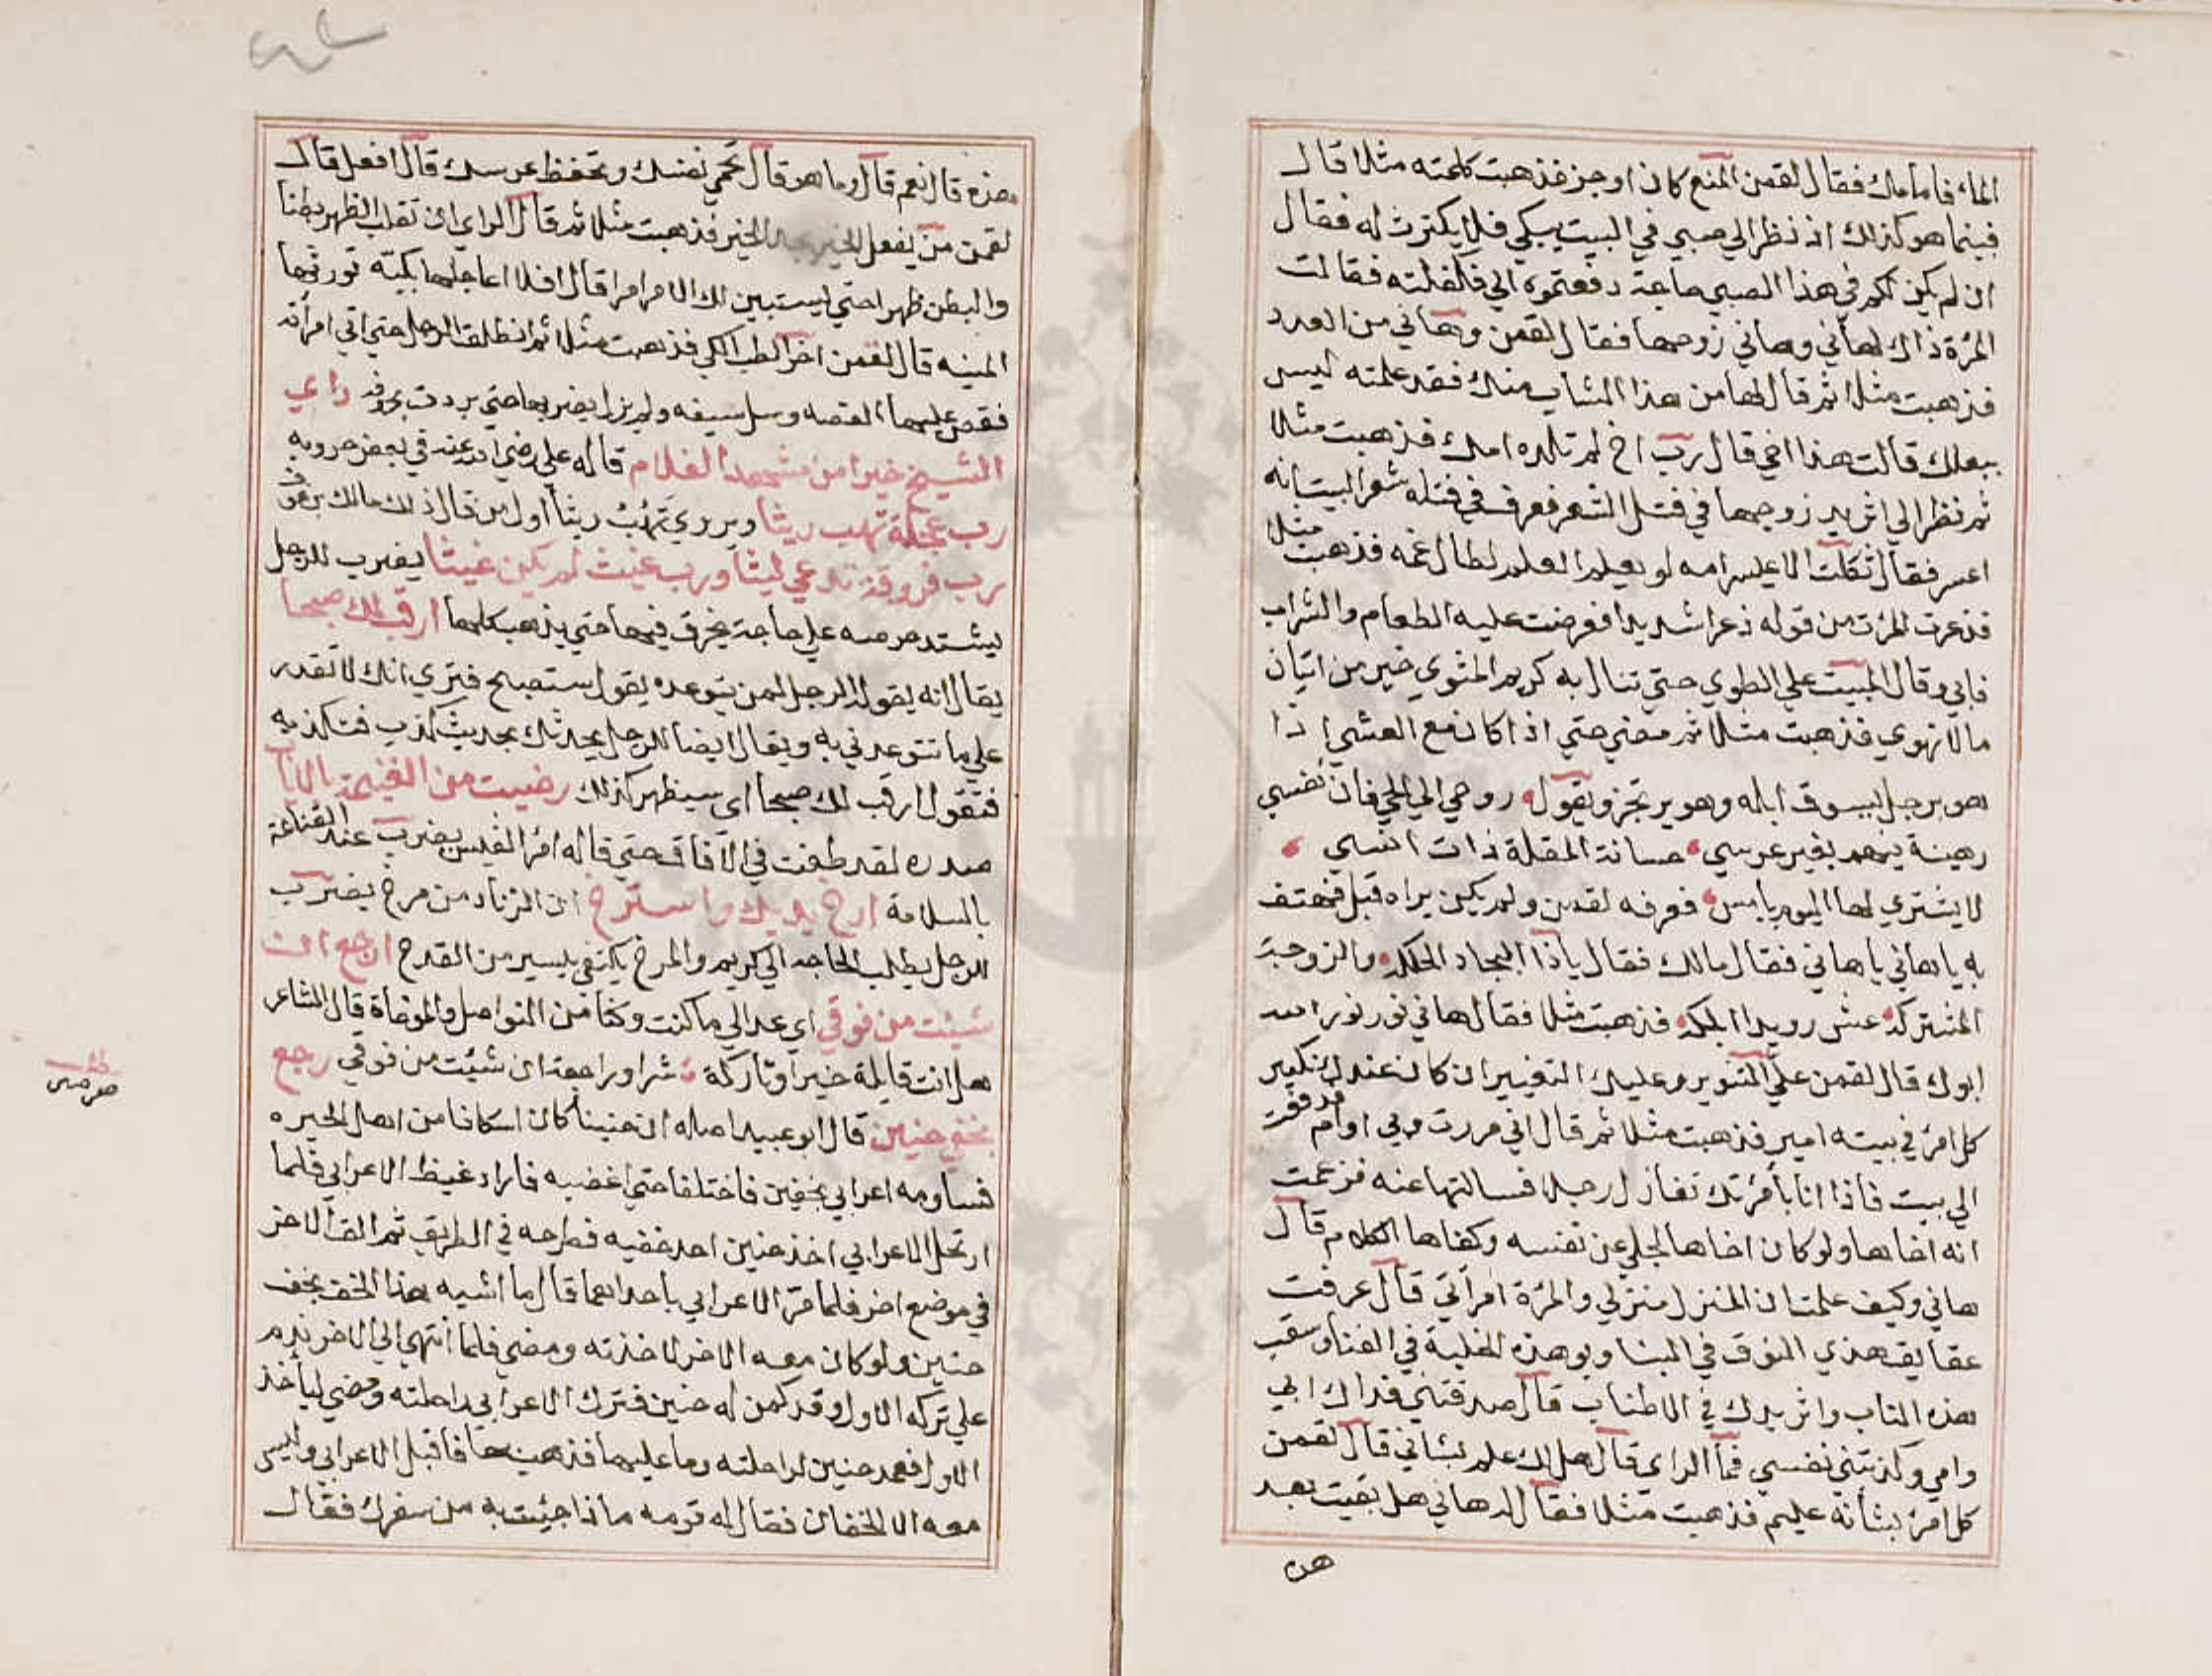 الماء فامامك فقال لقمن المنع كان اوجز فذهبت كلمته مثلا قال
فبينما هو كذلك اذ نظر الي صبي في البيت يبكي فلا يكترث له فقال
ان لم يكن لكم في هذا الصبي حاجة دفعتموه الي فاكفلته فقالت
المرة ذاك لهاني وهاني زوجها فقال لقمن وهاني من العدد
فذهبت مثلا ثم قال لها من هذا الشاب منك فقد علمته ليس
ببعلك قالت هذا اخي قال رب اخ لم تلده امك فذهبت مثلا
ثم نظر الي اثر يد زوجها في فتل الشعر فعرف في فتله شعر البيت انه
اعسر فقال ثكلت الاعيسر امه لو يعلم العلم لطال غمه فذهبت مثلا
فذعرت المرت من قوله ذعرا شديدا فعرضت عليه الطعام والشراب
فابي وقال المبيت علي الطوي حتي تنال به كريم المثوي خير من اتيان
مالا تهوي فذهبت مثلا ثم مضي حتي اذا كان مع العشي اذا
هو برجل يسوق ابله وهو يرتجز ويقول روحي الي الحي فان نفسي
رهينة فيهم بغير عرسي حسانة المقلة ذات انسي
لا يشتري لها اليوم بامس فعرفه لقمن ولم يكن يراه قبل فهتف
به يا هاني يا هاني فقال مالك فقال ياذا البجاد الحلكه والزوجة
المشتركه عش رويدا ابلكه فذهبت مثلا فقال هاني نور نور الله
ابوك قال لقمن علي التنوير وعليك التغيير ان كان عندك نكير
كل امرئ في بيته امير فذهبت مثلا ثم قال اني مررت وبي اوام فدفعت
الي بيت فاذا انا بأمرتك تغازل رجلا فسالتها عنه فزعمت
انه اخاها ولو كان اخاها لجلي عن نفسه وكفاها الكلام قال
هاني وكيف علمت ان المنزل منزلي والمرة امرأتي قال عرفت
عقايق هذي النوق في البنا وبوهذه الخلية في الفنا وسقب
هذه الناب واثر يدك في الاطناب قال صدقتني فداك ابي
وامي وكذبتني نفسي فما الراي قال هل لك علم بشاني قال لقمن
كل امرئ بشأنه عليم فذهبت مثلا فقال له هاني هل بقيت بعد
هذه
هذه قال نعم قال وما هو قال تحمي نفسك وتحفظ عرسك قال افعل قال
لقمن من يفعل الخير يجد الخير فذهبت مثلا ثم قال الراي ان تقلب الظهر بطنا
والبطن ظهرا حتي يستبين لك الامر امرا قال افلا اعاجلها بكيّة تورثها
المنيه قال لقمن اخر الطب الكي فذهبت مثلا ثم انطلق الرجل حتي اتي امرأته
فقص عليها القصه وسل سيفه ولم يزل يضربها حتي بردت راي
الشيخ خير من مشهد الغلام قاله علي رضي الله عنه في بعض حروبه
رب عجلة تهب ريثا ويروي تهب ريثا اول من قال ذلك مالك بن عوف
رب فروقة تدعي ليثا ورب غيث لم يكن غيثا يضرب للرجل
يشتد حرصه علي حاجة يخرق فيها حتي يذهب كلها ارقب لك صبحا
يقال انه يقول الرجل لمن يتوعده يقول ستصبح فتري انك لا تقدر
علي ما تتوعدني به ويقال ايضا للرجل يحدثك بحديث كذب فتكذبه
فتقول ارقب لك صبحا اي سيظهر كذبك رضيت من الغنيمة بالاياب
صدره لقد طفت في الآفاق حتي قاله امرؤ القيس يضرب عند القناعة
بالسلامة ارخ يديك واسترخ ان الزناد من مرخ يضرب
للرجل يطلب الحاجه الي كريم والمرخ يكتفي بيسير من القدح ارجع ان
شيئت من فوقي اي عد الي ما كنت وكنا من التواصل والموخاة قال الشاعر
هل انت قايلة خيرا وتاركة شرا وراجعة ان شئت من فوقي رجع
بخفي حنين قال ابو عبيد اصله ان حنينا كان اسكافا من اهل الحيره
فساومه اعرابي بخفين فاختلفا حتي اغضبه فاراد غيظ الاعرابي فلما
ارتحل الاعرابي اخذ حنين احد خفيه فطرحه في الطريق ثم القي الاخر
في موضع اخر فلما مرّ الاعرابي باحداهما قال ما اشبه هذا الخف بخف
حنين ولو كان معه الاخر لاخذته ومضي فلما انتهي الي الاخر ندم
علي تركه الاول وقد كمن له حنين فترك الاعرابي راحلته ومضي ليأخذ
الاول فعمد حنين لراحلته وما عليها فذهب بها فاقبل الاعرابي وليس
معه الا الخفان فقال له قومه ماذا جيئت به من سفرك فقال